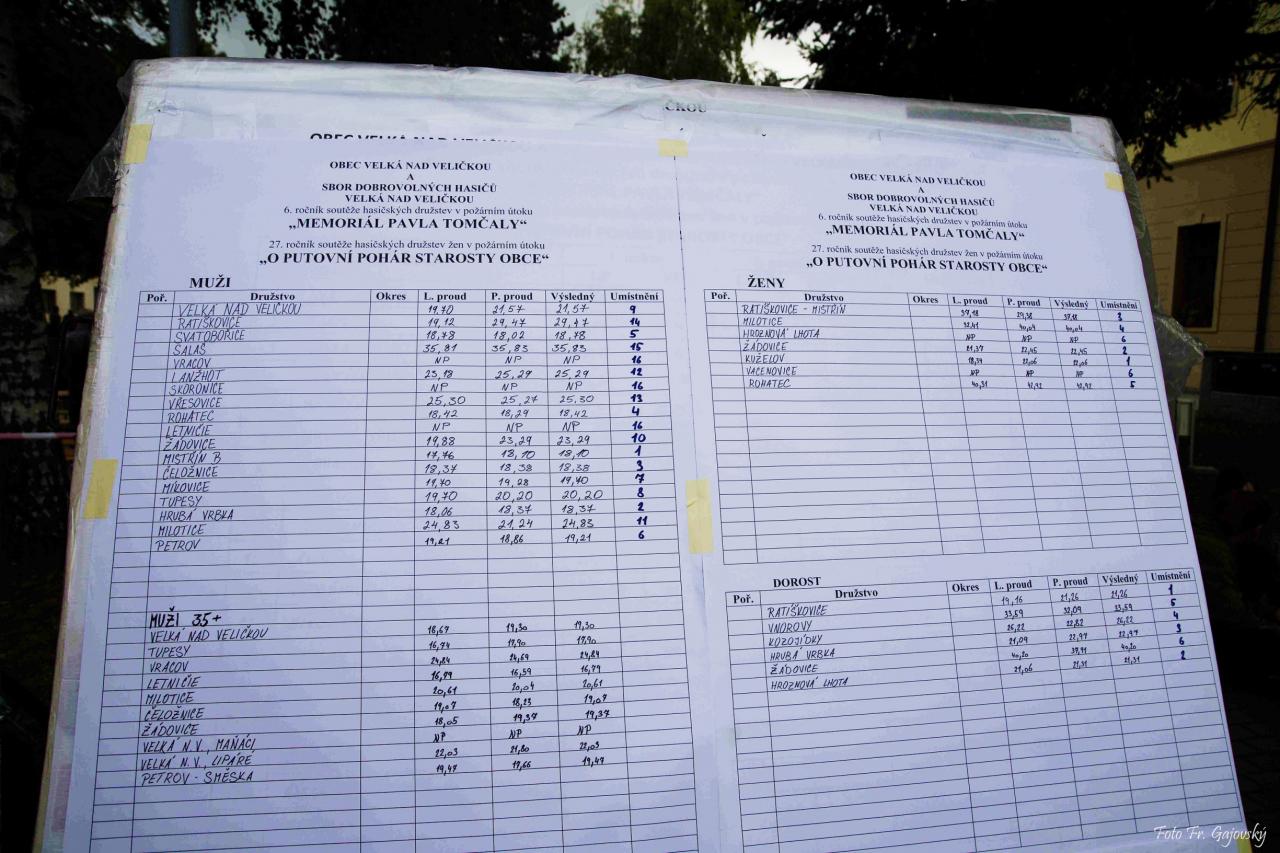 ČKOU
OBEC VELKÁ NAD VELIČKOU
OBEC VELKÁ NAD VELIČKOU
A
SBOR DOBROVOLNÝCH HASIČŮ
VELKÁ NAD VELIČKOU
6. ročník soutěže hasičských družstev v požárním útoku
„MEMORIÁL PAVLA TOMČALY“
27. ročník soutěže hasičských družstev žen v požárním útoku
„O PUTOVNÍ POHÁR STAROSTY OBCE“
MUŽI
Poř. Družstvo Okres L. proud P. proud Výsledný Umístnění
VELKÁ NAD VELIČKOU 19,70 21,57 21,57 9
RATIŠKOVICE 19,12 29,47 29,47 14
SVATOBOŘICE 18,78 18,02 18,78 5
SALAŠ 35,81 35,83 35,83 15
VRACOV NP NP NP 16
LANŽHOT 23,18 25,29 25,29 12
SKORONICE NP NP NP 16
VŘESOVICE 25,30 25,27 25,30 13
ROHATEC 18,42 18,29 18,42 4
LETNIČIE NP NP NP 16
ŽÁDOVICE 19,88 23,29 23,29 10
MISTŘÍN B 17,76 18,10 18,10 1
ČELOŽNICE 18,37 18,38 18,38 3
MIKOVICE 19,28 19,70 7
TUPESY 19,70 20,20 20,20 8
HRUBÁ VRBKA 18,06 18,37 18,37 2
MILOTICE 24,83 21,24 24,83 11
PETROV 19,21 18,86 19,21 6
MUŽI 35+
VELKÁ NAD VELIČKOU 18,67 19,30 19,30
TUPESY 16,74 17,90 17,90
VRACOV 24,84 24,69 24,84
LETNIČIE 16,79 16,59 16,79
MILOTICE 20,61 20,04 20,61
ČELOŽNICE 19,07 18,23 19,07
ŽÁDOVICE 18,05 19,37 19,37
VELKÁ N.V., MAŇÁCI NP NP NP
VELKÁ N.V., LIPÁŘÉ 22,03 21,80 22,03
PETROV - SMĚSKA 19,47 17,66 19,47
OBEC VELKÁ NAD VELIČKOU
A
SBOR DOBROVOLNÝCH HASIČŮ
VELKÁ NAD VELIČKOU
6. ročník soutěže hasičských družstev v požárním útoku
„MEMORIÁL PAVLA TOMČALY“
27. ročník soutěže hasičských družstev žen v požárním útoku
„O PUTOVNÍ POHÁR STAROSTY OBCE“
ŽENY
Poř. Družstvo Okres L. proud P. proud Výsledný Umístnění
RATIŠKOVICE - MISTŘÍN 37,18 29,38 37,18 3
MILOTICE 32,41 40,04 40,04 4
HROZNOVÁ LHOTA NP NP NP 6
ŽÁDOVICE 21,37 22,45 22,45 2
KUŽELOV 18,34 22,06 22,06 1
VACENOVICE NP NP NP 6
ROHATEC 40,31 42,92 42,92 5
DOROST
Poř. Družstvo Okres L. proud P. proud Výsledný Umístnění
RATIŠKOVICE 19,16 21,26 21,26 1
VNOROVY 33,59 32,09 33,59 5
KOZOJÍDKY 26,22 22,82 26,22 4
HRUBÁ VRBKA 21,09 22,97 22,97 3
ŽÁDOVICE 40,20 40,20 6
HROZNOVÁ LHOTA 21,06 21,31 21,31 2
Foto Fr. Gajovský